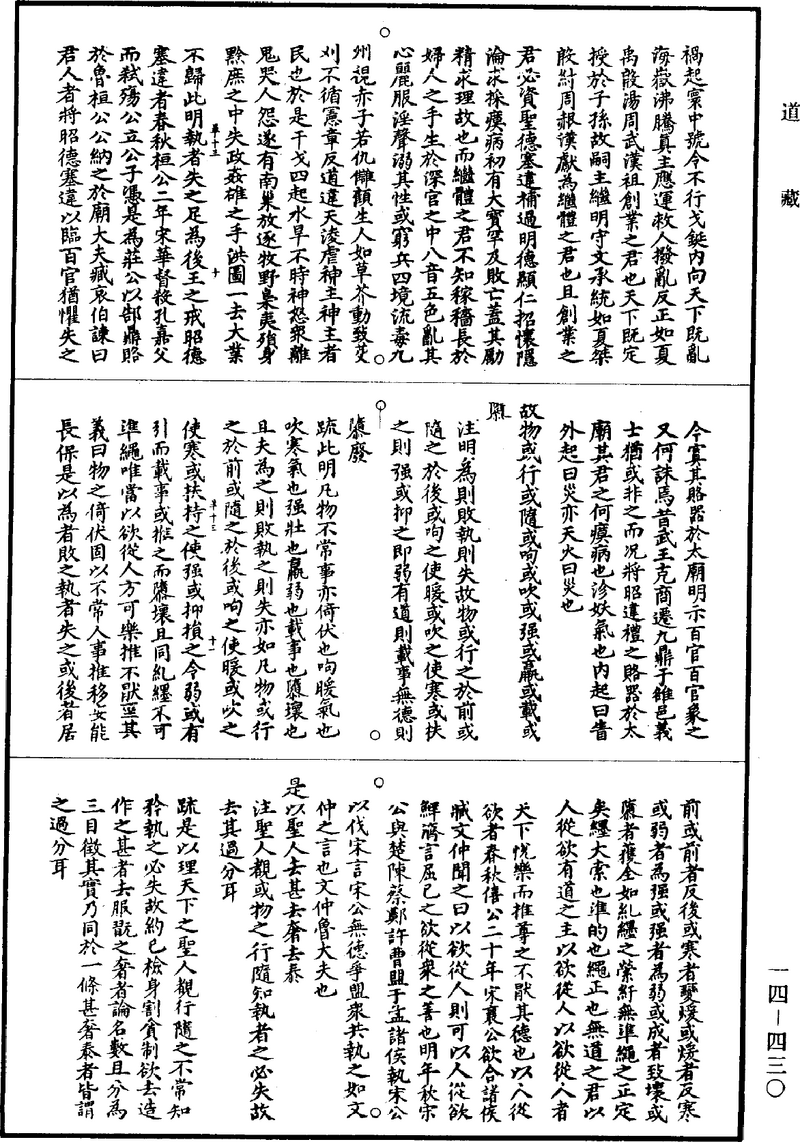 道藏
禍起寰中號令不行戈鋋內向天下既亂
海嶽沸騰真主應運救人撥亂反正如夏
禹殷湯周武漢祖創業之君也天下既定
授於子孫故嗣主繼明守文承統如夏桀
殷紂周赧漢獻為繼體之君也且創業之
君必資聖德塞違補過明德顯仁招懷隱
淪求採瘼病初有大寶罕及敗亡蓋其勵
精求理故也而繼體之君不知稼穡長於
婦人之手生於深宮之中八音五色亂其
心麗服淫聲溺其性或窮兵四境流毒九
州視赤子若仇讎顧生人如草芥動致芟
刈不循憲章反道違天淩虐神主神主者
民也於是干戈四起水旱不時神怒衆離
鬼哭人怨遂有南巢放逐牧野梟夷殞身
黔庶之中失政姦雄之手洪圖一去大業
不歸此明執者失之足為後王之戒昭德
塞違者春秋桓公二年宋華督殺孔嘉父
而弒殤公立公子馮是為莊公以郜鼎賂
於魯桓公公納之於廟大夫臧哀伯諫曰
君人者將昭德塞違以臨百官猶懼失之
今寘其賂器於太廟明示百官百官象之
又何誅焉昔武王克商遷九鼎于雒邑義
士猶或非之而況將昭違禮之賂器於太
廟其君之何瘼病也沴妖氣也內起曰眚
外起曰災亦天火曰災也
故物或行或隨或呴或吹或强或羸或載或
隳
注明為則敗執則失故物或行之於前或
隨之於後或呴之使暖或吹之使寒或扶
之則强或抑之即弱有道則載事無德則
隳廢
疏此明凡物不常事亦倚伏也呴暖氣也
吹寒氣也强壯也羸弱也載事也隳壞也
且夫為之則敗執之則失亦如凡物或行
之於前或隨之於後或呴之使暖或吹之
使寒或扶持之使强或抑損之令弱或有
引而載事或推之而隳壞且同糺纆不可
準繩唯當以欲從人方可樂推不猒豈其
義曰物之倚伏固以不常人事推移安能
長保是以為者敗之執者失之或後者居
前或前者反後或寒者變煖或煖者反寒
或弱者為强或强者為弱或成者致壞或
隳者獲全如糺纆之縈紆無準繩之正定
矣纆大索也準的也繩正也無道之君以
人從欲有道之主以欲從人以欲從人者
天下悅樂而推尊之不猒其德也以人從
欲者春秋僖公二十年宋襄公欲合諸侯
臧文仲聞之曰以欲從人則可以人從欲
鮮濟言屈己之欲從衆之善也明年秋宋
公與楚陳蔡鄭許曹盟于盂諸侯執宋公
以伐宋言宋公無德爭盟衆共執之如文
仲之言也文仲魯大夫也
是以聖人去甚去奢去泰
注聖人觀或物之行隨知執者之必失故
去其過分耳
疏是以理天下之聖人觀行隨之不常知
矜執之必失故約已檢身割貪制欲去造
作之甚者去服翫之奢者論名數且分為
三目徵其實乃同於一條甚奢泰者皆謂
之過分耳
一四－四三〇